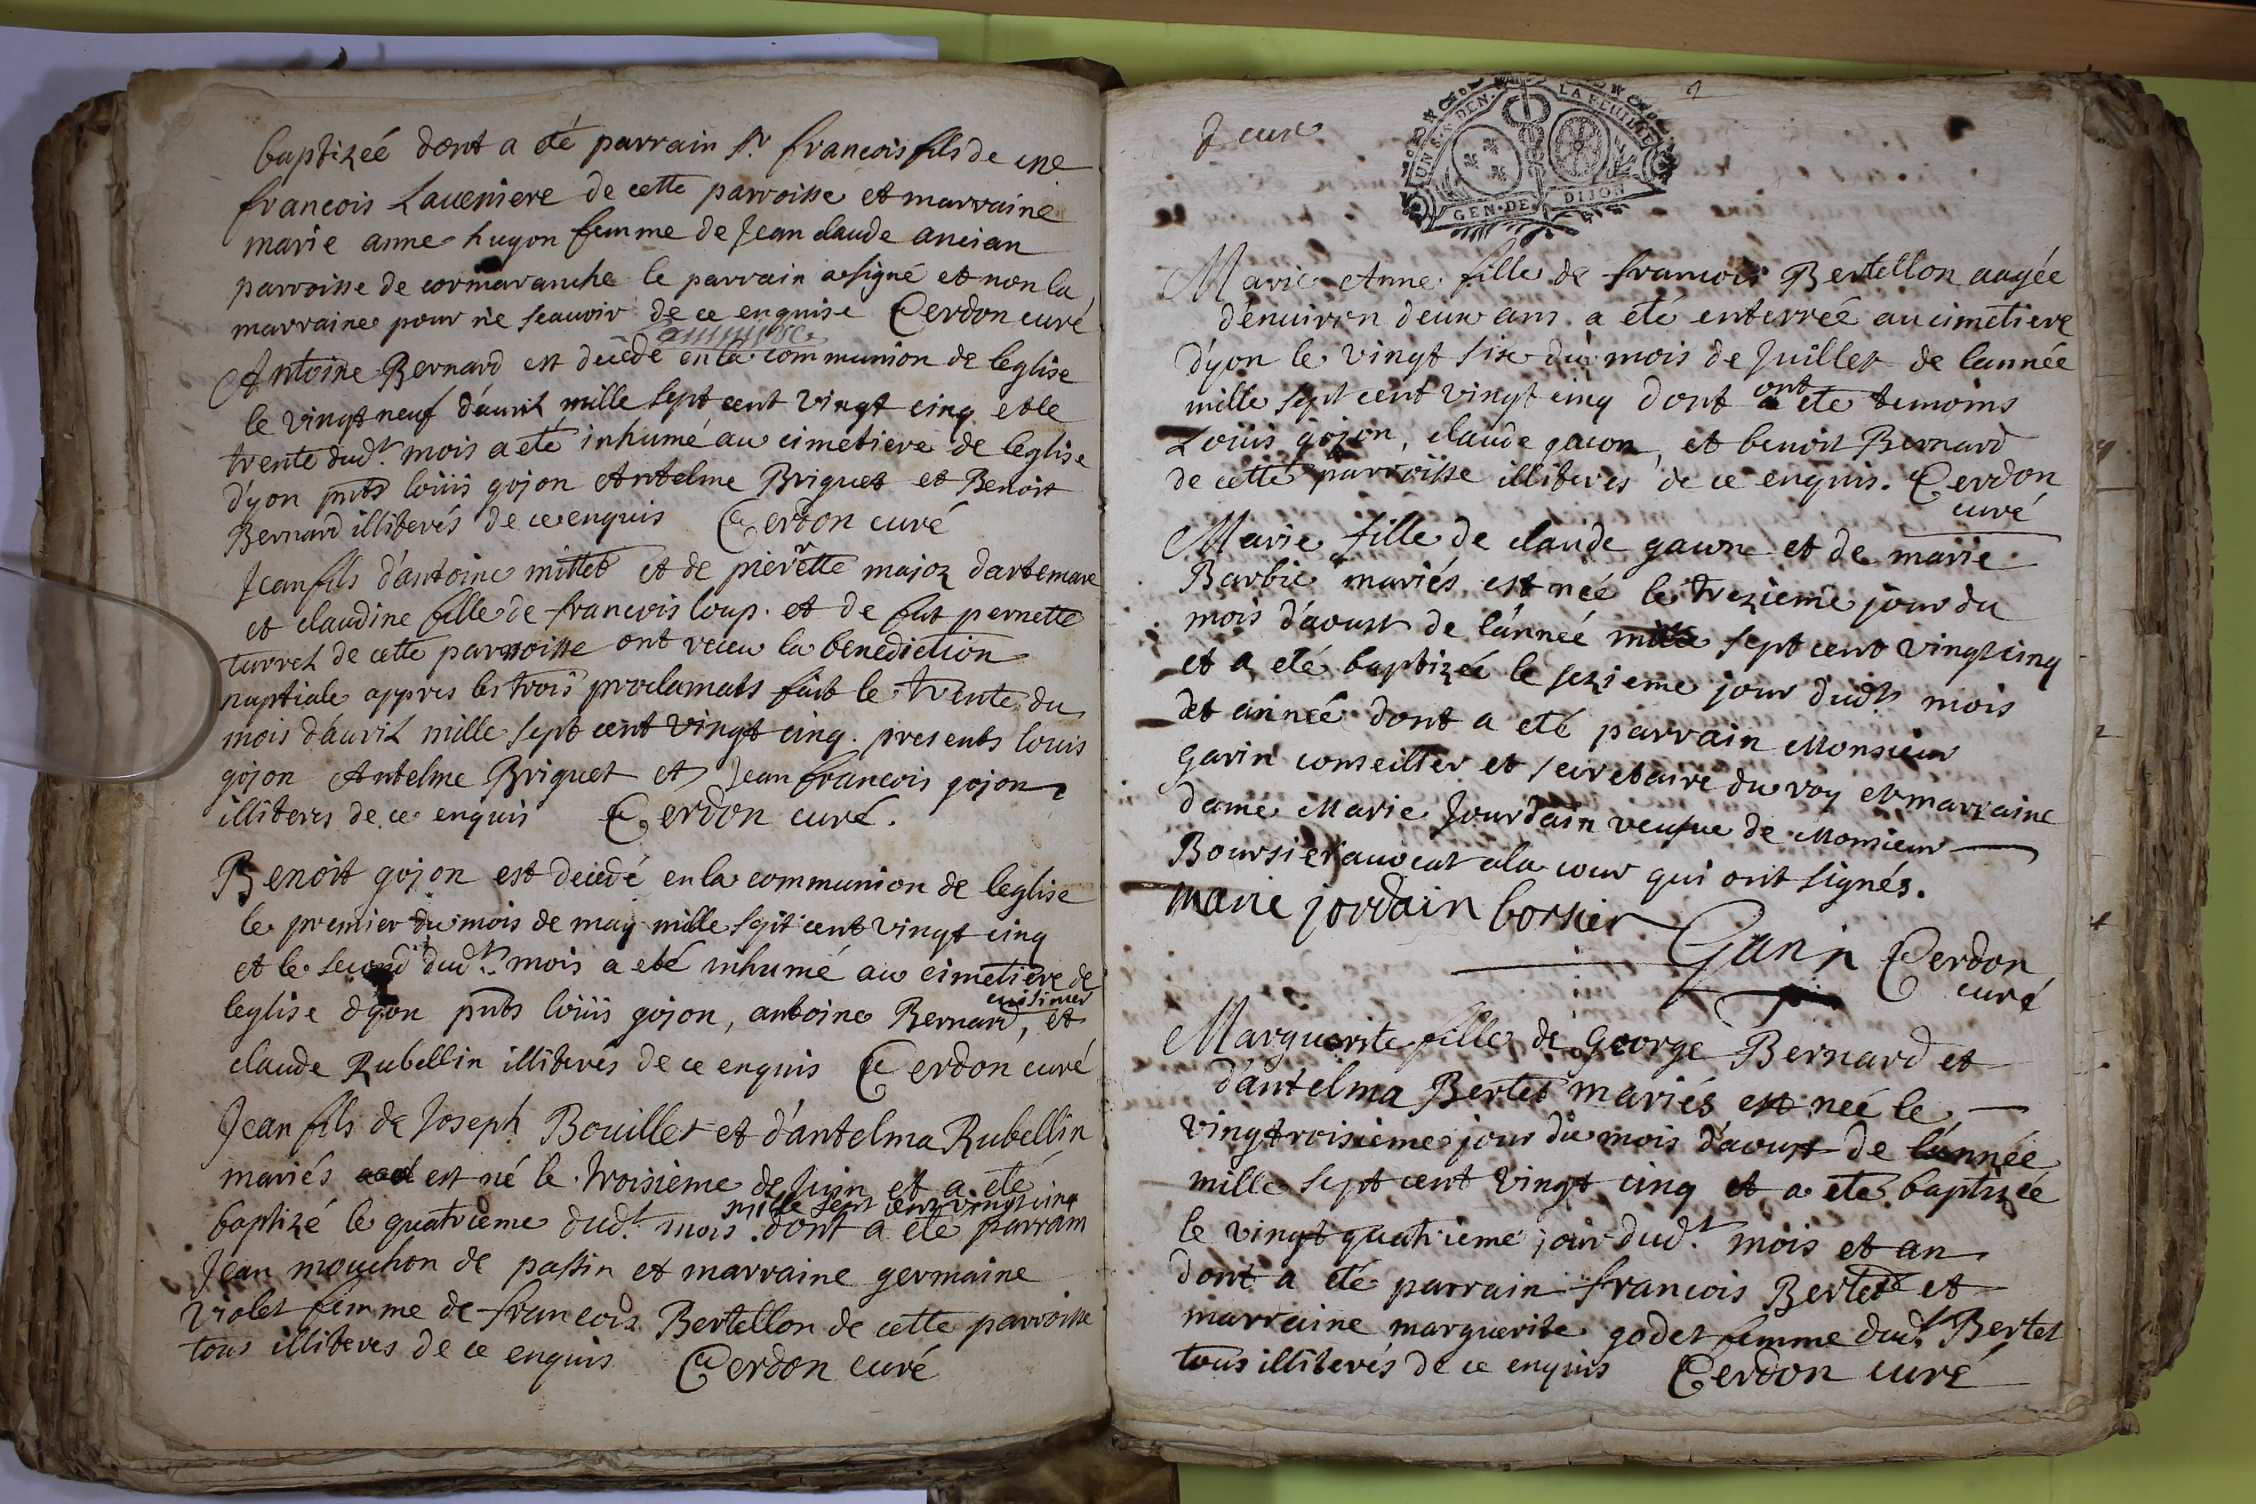 baptizéé dont a eté parrain sr. francois fils de me
francois Laveniere de cette parroisse et marraine
marie anne hugon femme de Jean claude ancian
parroisse de cormaranche le parrain a signé et non la
marraine pour ne scauoir de ce enquise Cerdon curé
Antoine Bernard est decedé en la communion de leglise
le vingt neuf d'auril mille sept cent vingt cinq et le
trente dudt. mois a eté inhumé au cimetiere de leglise
d'yon pnts loüis gojon Antelme Briguet et Benoit
Bernard illiterés de ce enquis Cerdon curé
Jean fils d'antoine millet et de pierrette major dartemare
et claudine fille de francois loup. et de fut pernette
turrel de cette parroisse ont receu la benediction
nuptiale appres les trois proclamats fait le trente du
mois d'auril mille sept cent vingt cinq. presents louis
gojon Antelme Briguet et Jean francois gojon
illiteres de ce enquis Cerdon curé.
Benoit gojon est decedé en la communion de leglise
le premier du mois de may mille sept cent vingt cinq
et le second dudt. mois a eté inhumé au cimetiere de
cuisinier
leglise dyon pnts loüis gojon, antoine Bernard, et
claude Rubellin illiterés de ce enquis Cerdon curé
Jean fils de Joseph Bouillet et d'antelma Rubellin
mariés est né le troisième de Juin et a eté
mille sept cent vingt cinq
baptizé le quatrieme dudt. mois. dont a eté parrain
Jean mouchon de passin et marraine germaine
violet femme de francois Bertellon de cette parroisse
tous illiteres de ce enquis Cerdon curé
UN S. 8 DEN. LA FEUILLE
GEN. DE DIJON
Marie Anne fille de francois Bertellon aagée
d'enuiron deux ans a eté enterrée au cimetiere
d'yon le vingt six du mois de Juillet de lannée
ont
mille sept cent vingt cinq dont a eté temoins
Loüis gojon, claude gacon, et benoit Bernard
de cette parroisse illiteres de ce enquis. Cerdon
curé
Marie fille de claude gacon et de marie
Barbié mariés est neé le trezieme jour du
mois d'aoust de l'anneé mille sept cent vingt cinq
et a eté baptizée le sezieme jour dudt mois
et anneé dont a eté parrain Monsieur
garin conseiller et secretaire du roy et marraine
dame Marie Jourdain veufue de Monsieur
Boursier auocat a la cour qui ont signés.
marie jordain borsier
Garin Cerdon
curé
Marguerite fille de George Bernard et
d'antelma Bertet mariés est neé le
vingtroisieme jour du mois d'aoust de l'année
mille sept cent vingt cinq et a eté baptizée
le vingt quatrieme jour dudt. mois et an
dont a eté parrain francois Bertet et
marraine marguerite godet femme dudt. Bertet
tous illiterés de ce enquis Cerdon curé